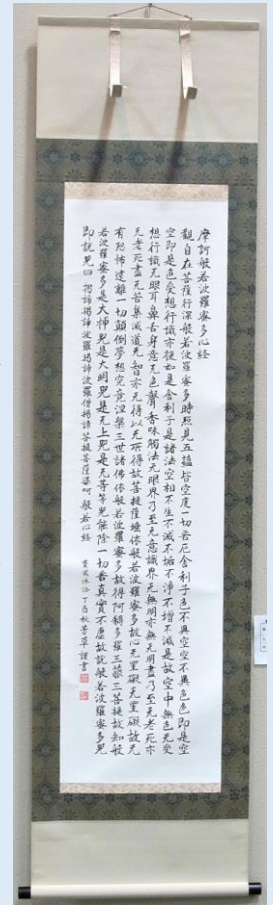 摩訶般若波羅蜜多心経
觀自在菩薩行深般若波羅蜜多時照見五蘊皆空度一切苦厄舍利子色不異空空不異色色即是空
空即是色受想行識亦復如是舍利子是諸法空相不生不滅不垢不淨不增不減是故空中無色无受
想行識无眼耳鼻舌身意无色聲香味觸法无眼界乃至无意識界无無明亦無无明盡乃至无老死亦
无老死盡无苦集滅道无智亦无得以无所得故菩提薩埵依般若波羅蜜多故心无罣礙无罣礙故无
有恐怖遠離一切顛倒夢想究竟涅槃三世諸佛依般若波羅蜜多故得阿耨多羅三藐三菩提故知般
若波羅蜜多是大神咒是大明咒是无上咒是无等等咒能除一切苦真實不虛故說般若波羅蜜多咒
即說咒曰 揭諦揭諦波羅揭諦波羅僧揭諦菩提薩婆呵般若心経
丁酉秋 謹書